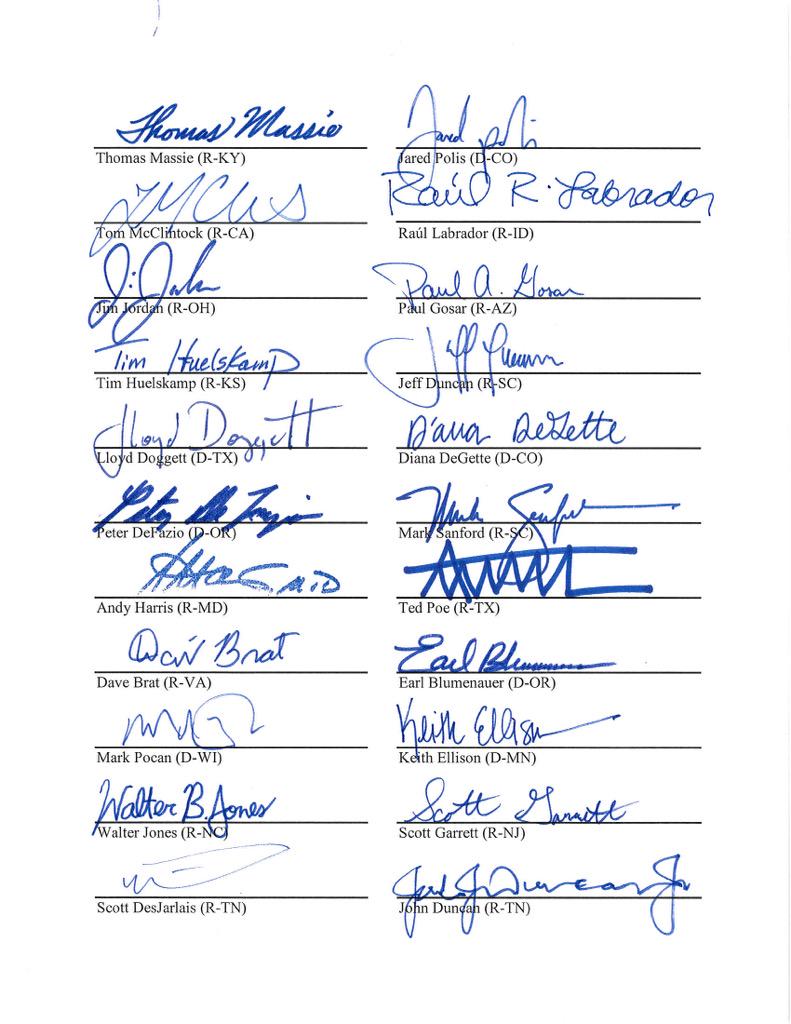 Thomas Massie Jared Polis
Thomas Massie (R-KY) Jared Polis (D-CO)
Raúl R. Labrador
Tom McClintock (R-CA) Raúl Labrador (R-ID)
Paul A. Gosar
Jim Jordan (R-OH) Paul Gosar (R-AZ)
Tim Huelskamp Jeff Duncan
Tim Huelskamp (R-KS) Jeff Duncan (R-SC)
Lloyd Doggett Diana DeGette
Lloyd Doggett (D-TX) Diana DeGette (D-CO)
Mark Sanford
Peter DeFazio (D-OR) Mark Sanford (R-SC)
MD
Andy Harris (R-MD) Ted Poe (R-TX)
Dave Brat Earl Blumenauer
Dave Brat (R-VA) Earl Blumenauer (D-OR)
Keith Ellison
Mark Pocan (D-WI) Keith Ellison (D-MN)
Walter B. Jones Scott Garrett
Walter Jones (R-NC) Scott Garrett (R-NJ)
John J. Duncan Jr
Scott DesJarlais (R-TN) John Duncan (R-TN)